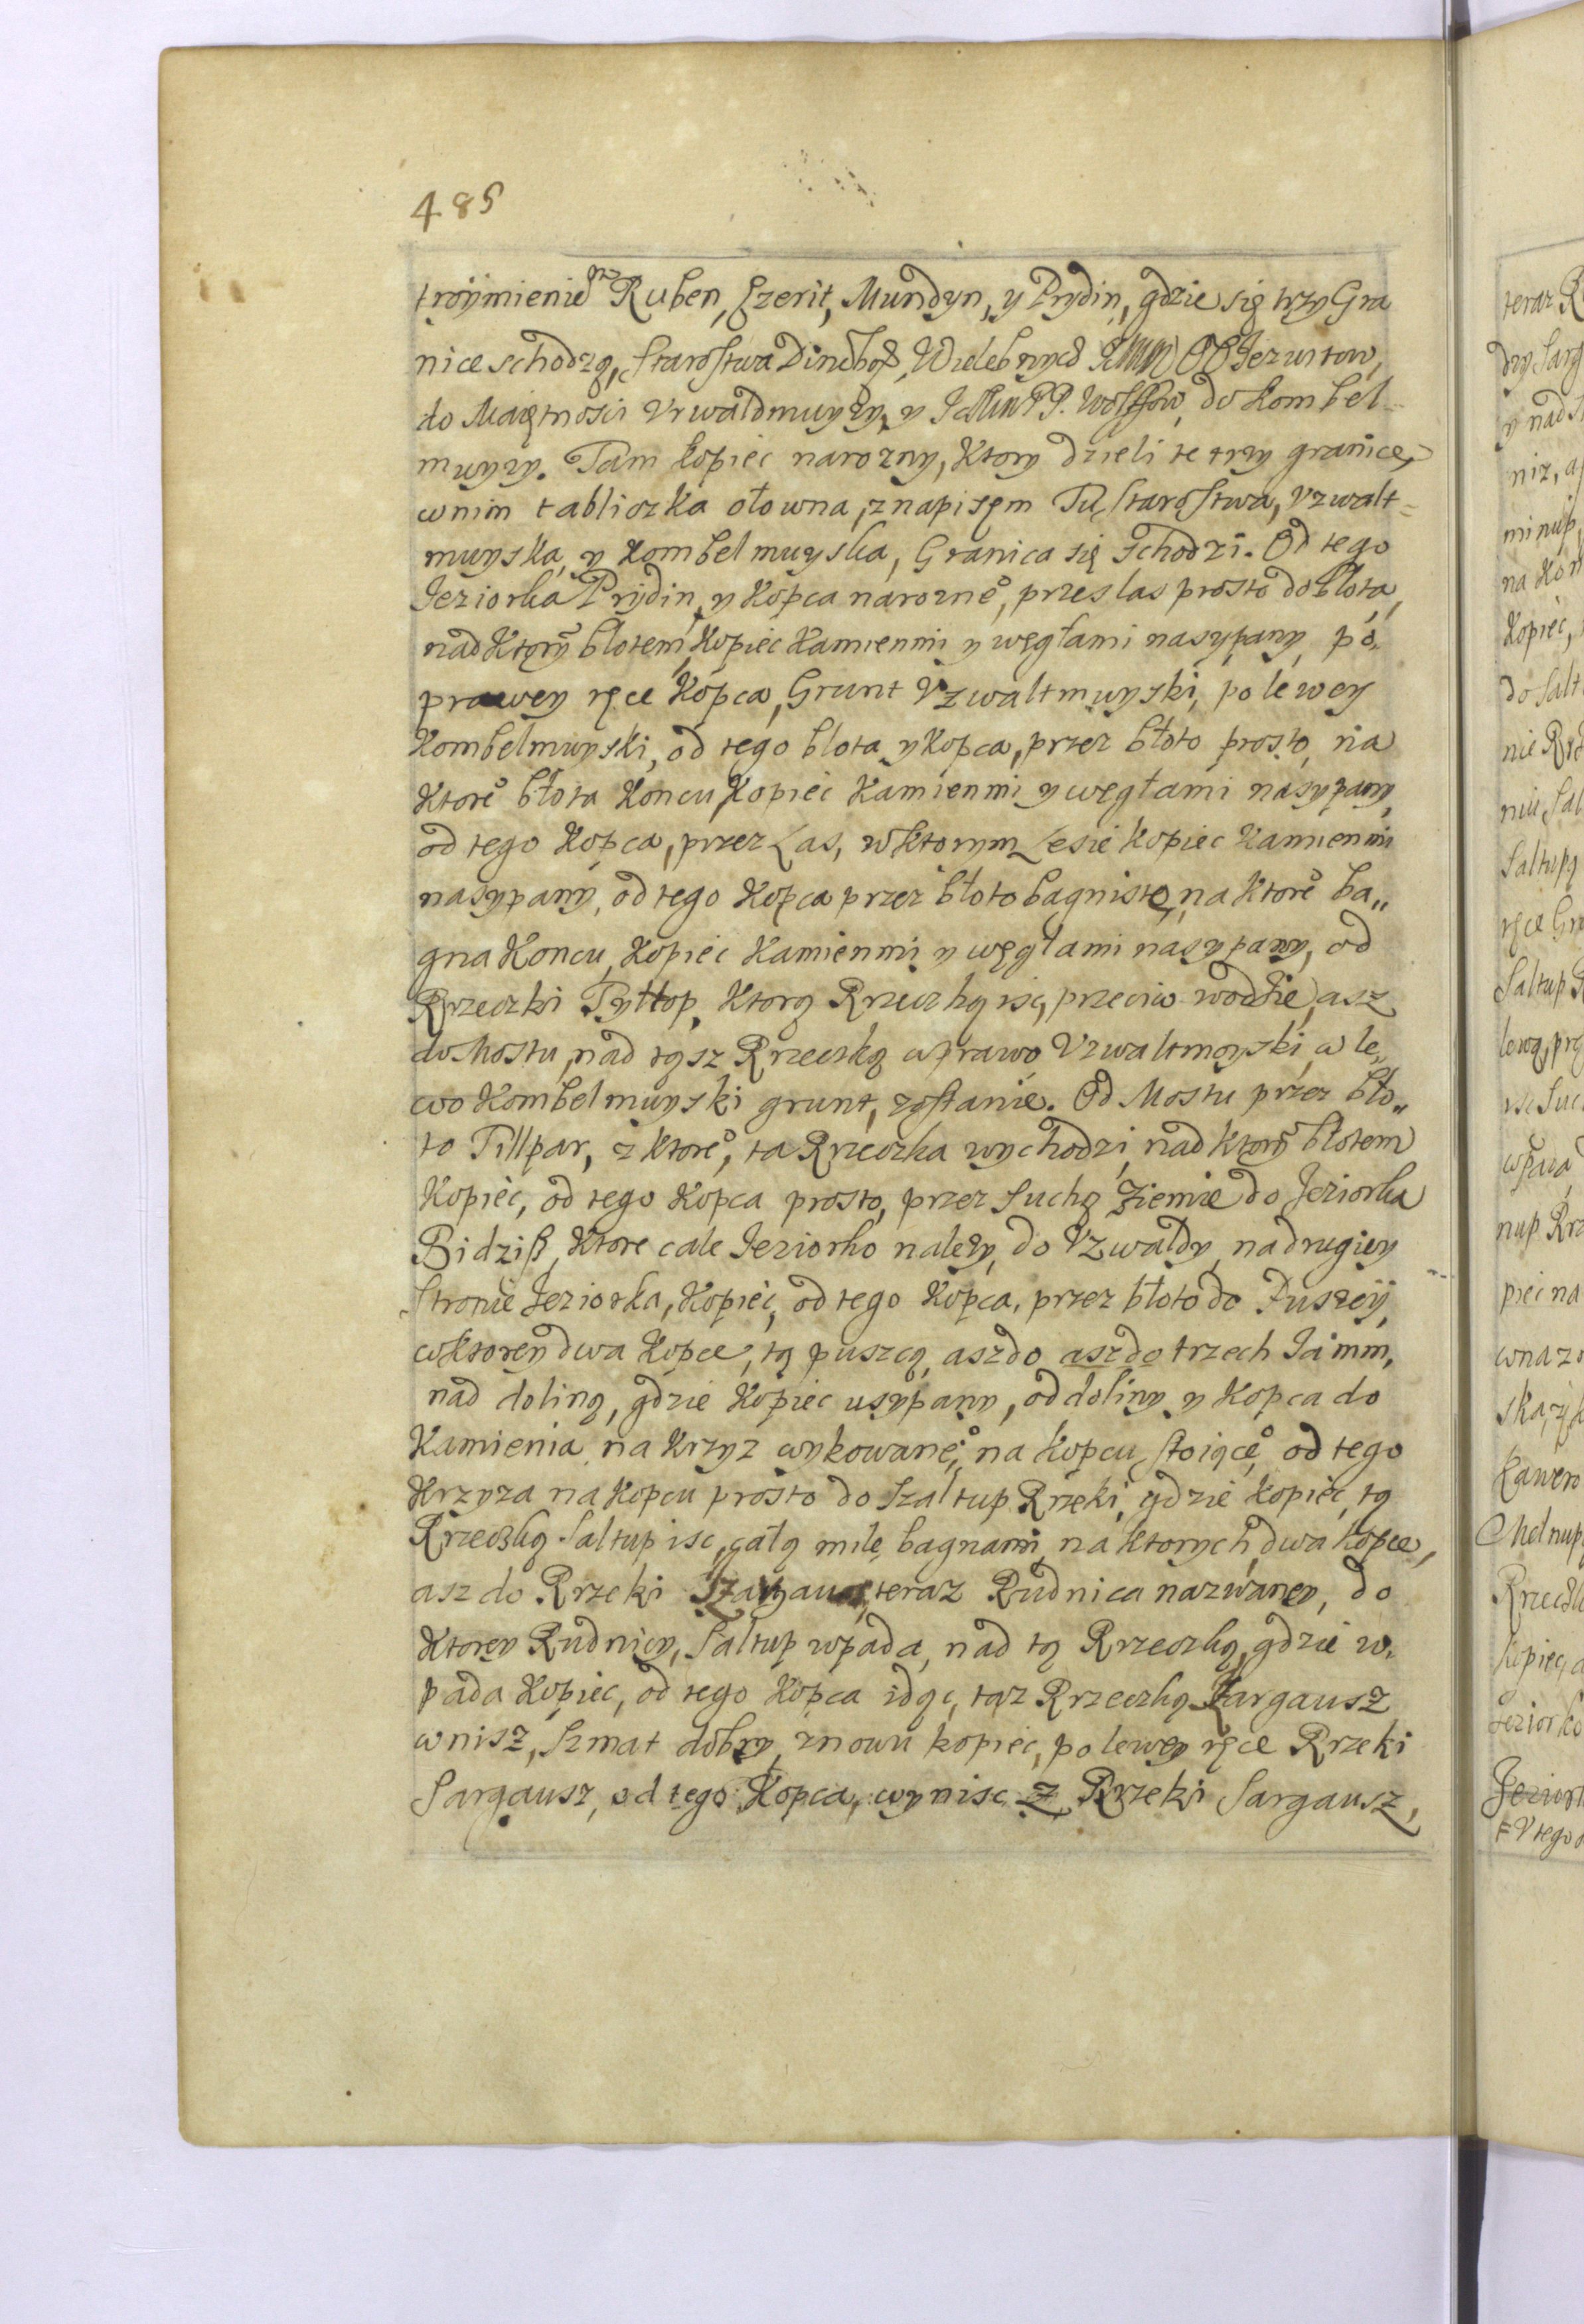 485
troÿmienie Ruben, Ezerit, Mundyn, y Prydin, gdzie się trzy Gra
nice schodzą, Starostwa Dineborß, Wielebnych OO Jezuitow,
do Maiętnosci Vzwaldmuyży, y PP. Wolffow, do Kombel=
muyzy. Tam kopiec narozny, Ktory dzieli te trzy granice,
w nim tabliczka ołowna, z napisęm Tu Starostwa, Vzwalt=
muyska, y Kombelmuyska, Granica się schodzi. Od tego
Jeziorka Prydin, y Kopca narozneº, przes las prosto do błota,
nad Ktorÿ błotem, Kopiec Kamienmi y węgłami nasypany, po
prawey ręce Kopca, Grunt Vzwaltmuyski, po lewey
Kombelmuyski, od tego błota y Kopca, przez błoto prosto, na
Ktoreº błota Koncu, Kopiec Kamienmi y węgłami nasypany,
od tego Kopca, przez Las, w ktorym Lesie Kopiec Kamienmi
nasypany, od tego Kopca przez błoto bagniste, na Ktoreº ba„
gna Koncu, Kopiec Kamienmi y węgłami nasypany, od
Rzeczki Tyltop, Ktorą Rzeczką isc, przeciw wodzie, asz
do Mostu, nad tąsz Rzeczką w prawo Vzwaltmoyski, w le„
wo Kombelmuyski grunt, zostanie. Od Mostu przez bło„
to Tillpar, z Ktoreº, ta Rzeczka wychodzi, nad Ktorÿ błotem
Kopiec, od tego Kopca prosto, przez Suchą Ziemie do Jeziorka
Bidziß, Ktore cale Jeziorko nalezy, do Vzwaldy, na drugiey
Stronie Jeziorka, Kopiec, od tego Kopca, przez błoto do Puszcÿ,
w ktorey dwa Kopce, tą puszcą, asz do asz do trzech Jamm,
nad doliną, gdzie Kopiec usypany, od doliny y Kopca do
Kamienia, na Krzyz wykowaneº, na Kopcu stoięceº, od tego
Krzyza na Kopcu prosto do Szaltup Rzeki, gdzie Kopiec, tą
Rzeczką Saltup isc, całą milę bagnami, na ktorych, dwa Kopce,
asz do Rzeki teraz Rudnica nazwaney, do
Ktorey Rudnicy, Saltup wpada, nad tą Rzeczką, gdzie w„
pada Kopiec, od tego Kopca idąc, taz Rzeczką Zargausz
w nisz, Szmat dobry, znowu kopiec, po lewey ręce Rzeki
Sargausz, od tego Kopca, wynisc z Rzeki Sargausz,